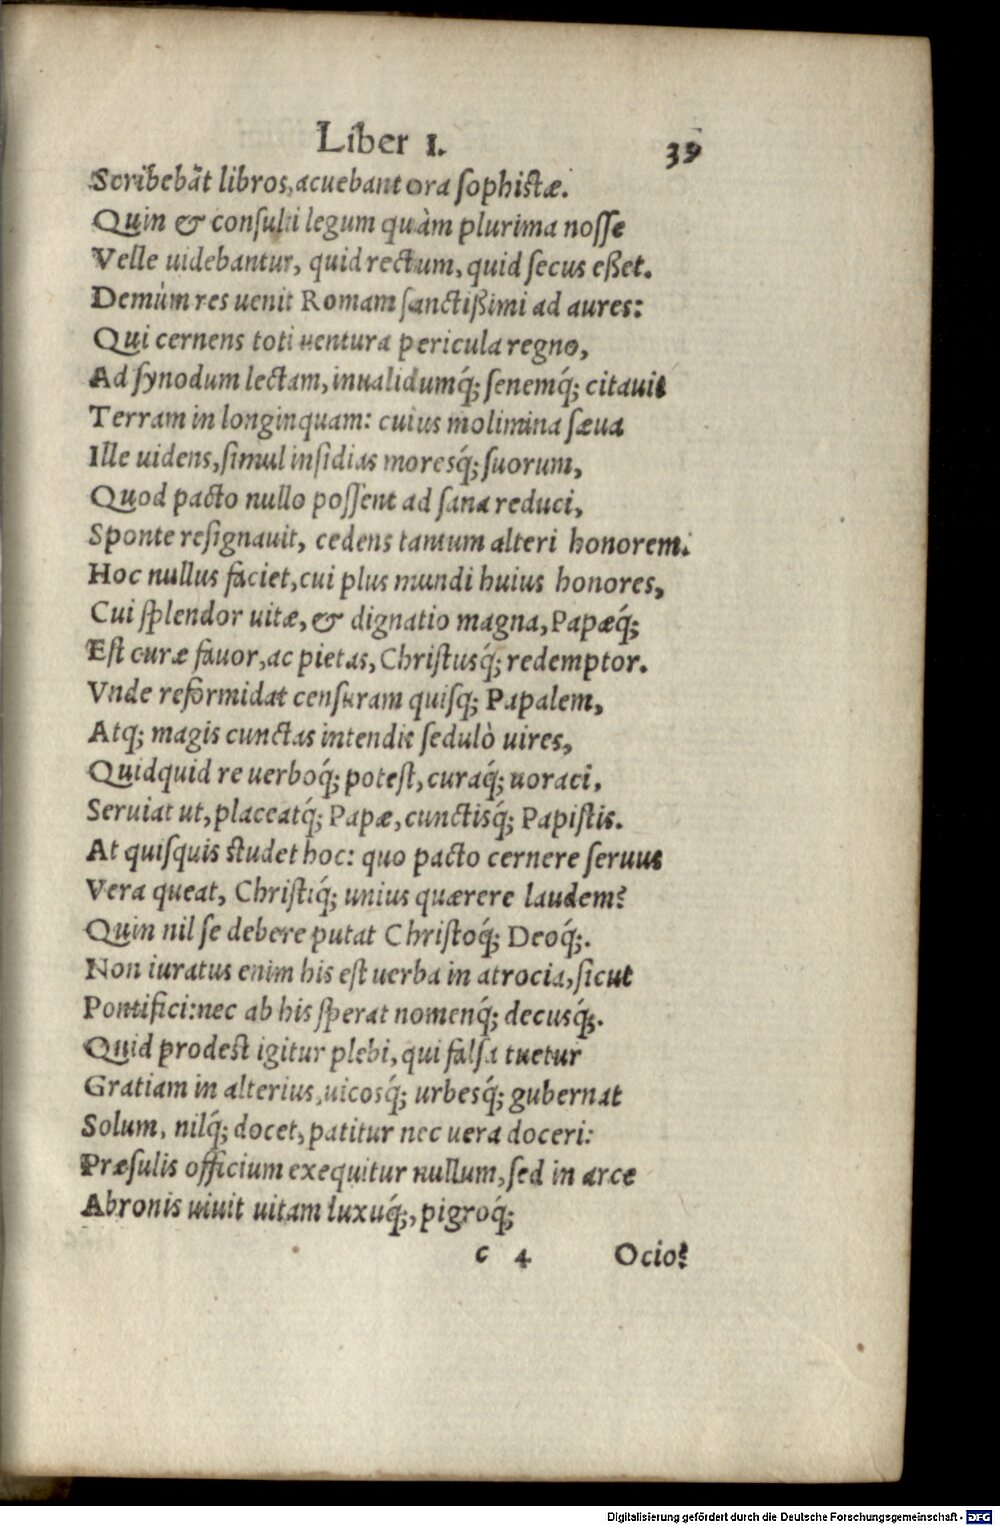 Liber I. 39
Scribebāt libros, acuebant ora sophistæ.
Quin & consulti legum quàm plurima nosse
Velle uidebantur, quid rectum, quid secus eßet.
Demùm res uenit Romam sanctißimi ad aures:
Qui cernens toti uentura pericula regno,
Ad synodum lectam, inualidumq́; senemq́; citauit
Terram in longinquam: cuius molimina sæua
Ille uidens, simul insidias moresq́; suorum,
Quod pacto nullo possent ad sana reduci,
Sponte resignauit, cedens tantum alteri honorem.
Hoc nullus faciet, cui plus mundi huius honores,
Cui splendor uitæ, & dignatio magna, Papæq́;
Est curæ fauor, ac pietas, Christusq́; redemptor.
Vnde reformidat censuram quisq; Papalem,
Atq; magis cunctas intendit sedulò uires,
Quidquid re uerboq́; potest, curaq́; uoraci,
Seruiat ut, placeatq́; Papæ, cunctisq́; Papistis.
At quisquis studet hoc: quo pacto cernere seruus
Vera queat, Christiq́; unius quærere laudem?
Quin nil se debere putat Christoq́; Deoq́;.
Non iuratus enim his est uerba in atrocia, sicut
Pontifici: nec ab his sperat nomenq́; decusq́;.
Quid prodest igitur plebi, qui falsa tuetur
Gratiam in alterius, uicosq́; urbesq́; gubernat
Solum, nilq́; docet, patitur nec uera doceri:
Præsulis officium exequitur nullum, sed in arce
Abronis uiuit uitam luxuq́;, pigroq́;
c 4 Ocio?
Digitalisierung gefördert durch die Deutsche Forschungsgemeinschaft - DFG